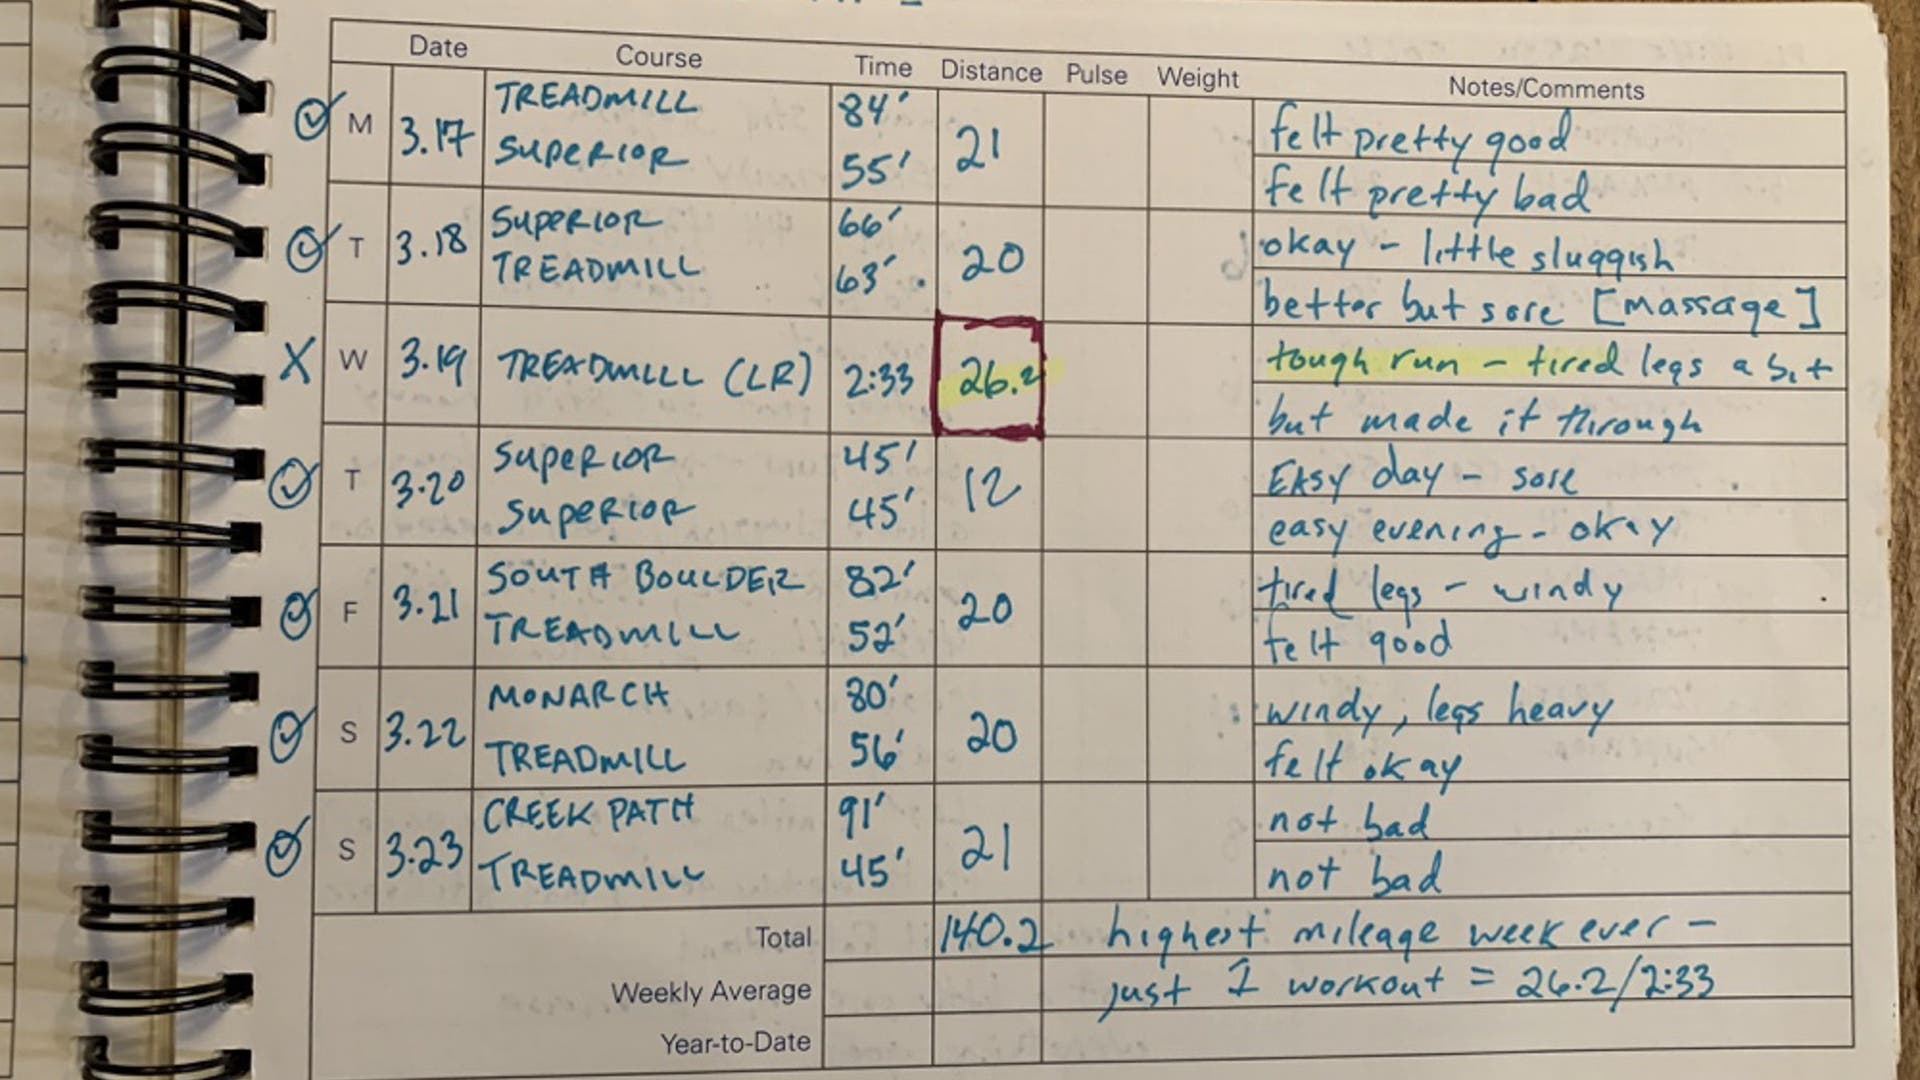 Date Course Time Distance Pulse Weight Notes/Comments
M 3.17 TREADMILL 84' 21 felt pretty good
SUPERIOR 55' felt pretty bad
T 3.18 SUPERIOR 66' 20 okay - little sluggish
TREADMILL 63' better but sore [massage]
X W 3.19 TREADMILL (LR) 2:33 26.2 tough run - tired legs a bit
but made it through
T 3.20 SUPERIOR 45' 12 EASY day - sore
SUPERIOR 45' easy evening - okay
F 3.21 SOUTH BOULDER 82' 20 tired legs - windy
TREADMILL 52' felt good
S 3.22 MONARCH 80' 20 windy, legs heavy
TREADMILL 56' felt okay
S 3.23 CREEK PATH 91' 21 not bad
TREADMILL 45' not bad
Total 140.2 highest mileage week ever -
Weekly Average just 1 workout = 26.2/2:33
Year-to-Date